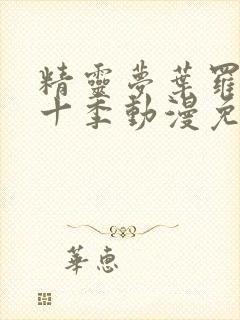 精靈夢葉羅
十季動漫免
華惠